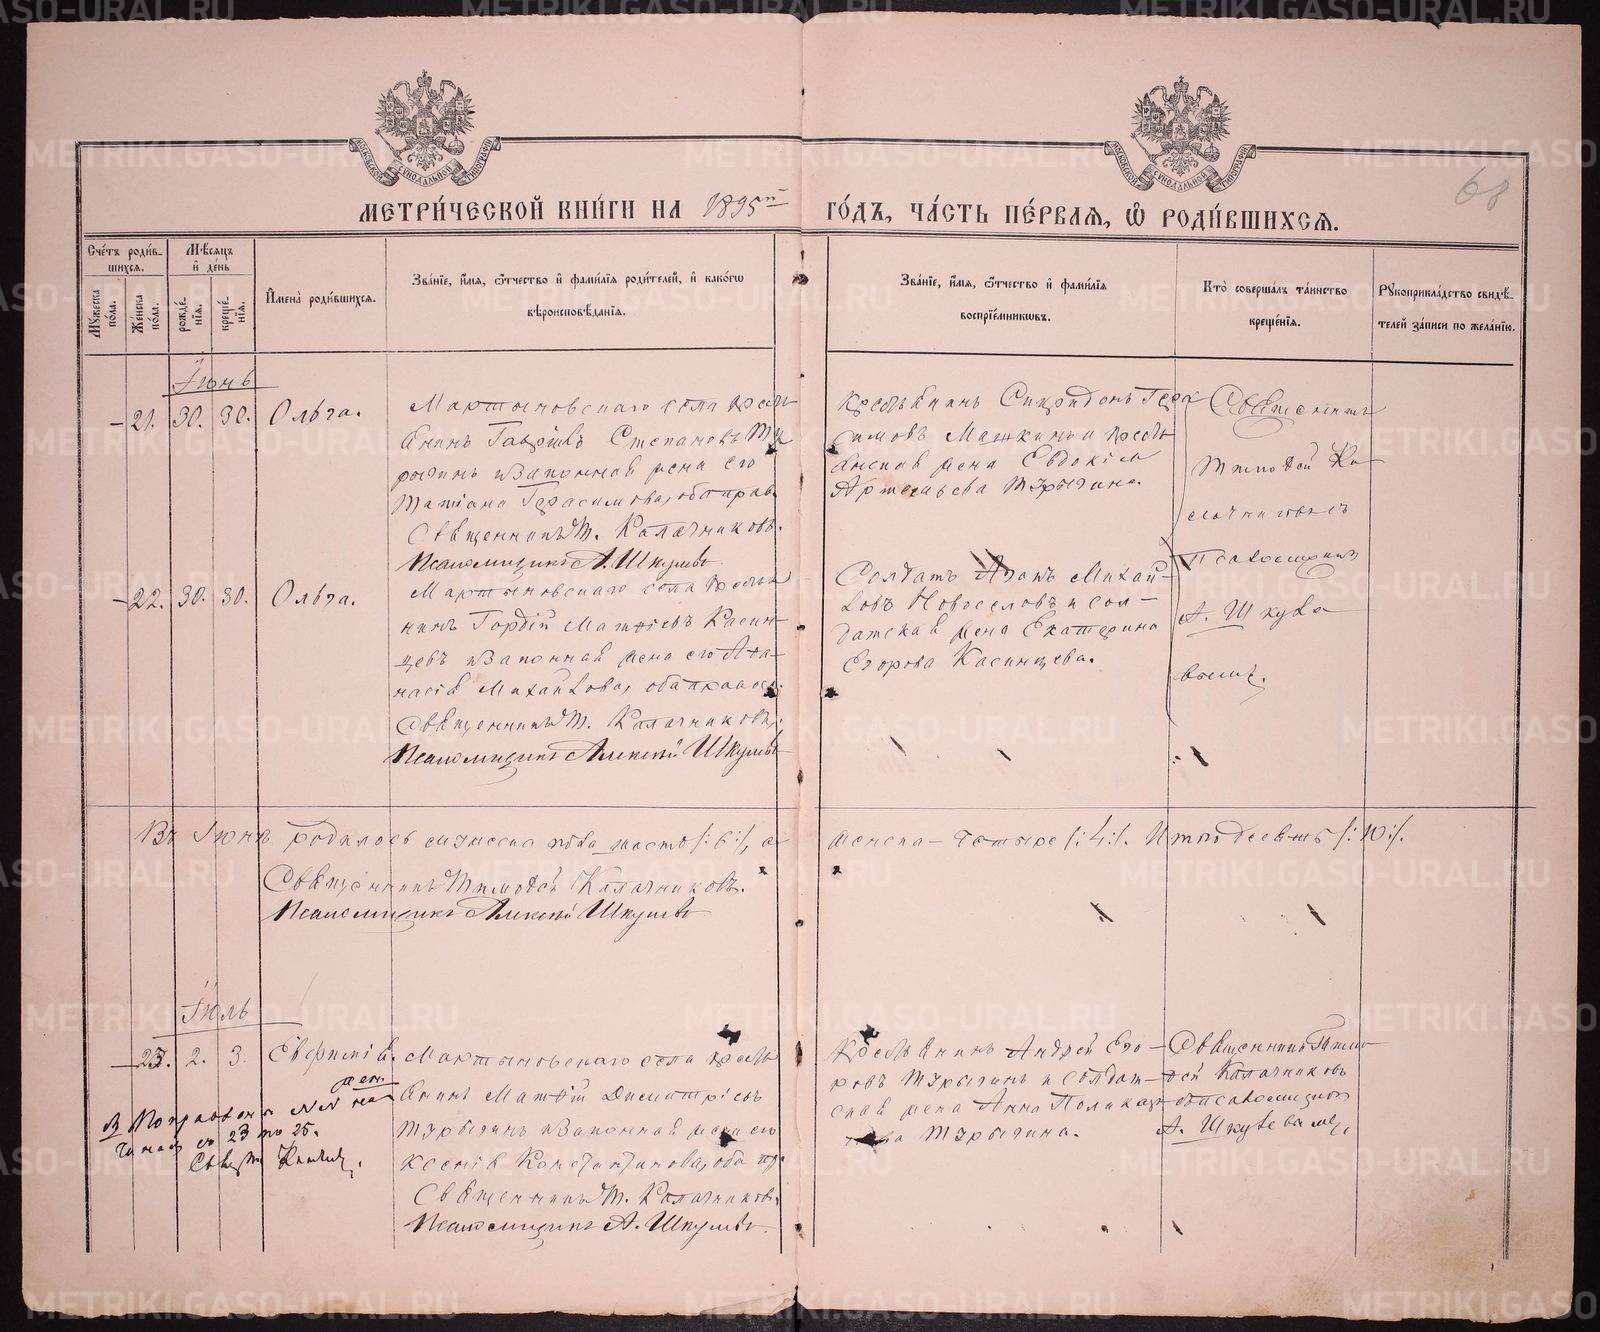 МЕТРИ́ЧЕСКОЙ КНИ́ГИ НА 1895й ГО́ДЪ, ЧА́СТЬ ПЕ́РВАЯ, Ѿ РОДИ́ВШИХСЯ.
68
Сче́тъ роди́в-
шихся.
Мꙋ́жеска по́ла.
Же́нска по́ла.
Мѣ́сяцъ
и҆ де́нь
рожде́-
нія.
креще́-
нія.
И҆мена̀ роди́вшихся.
Зва́ніе, и҆́мя, ѻ҆́тчество и҆ фами́лія роди́телей, и҆ како́гѡ
вѣроисповѣ́данія.
Зва́ніе, и҆́мя, ѻ҆́тчество и҆ фами́лія
воспріе́мникѡвъ.
Кто̀ соверша́лъ та́инство
креще́нія.
Рꙋкоприкла́дство свидѣ́-
телей за́писи по жела́нію.
Іюнь
21. 30. 30. Ольга.
Мартыновскаго села кресть
янинъ Гавріилъ Степановъ Ту
рыгинъ и законная жена его
Татіана Герасимова, оба прав.
Священникъ Т. Калачниковъ.
Псаломщикъ А. Шкулевъ
Крестьянинъ Спиридонъ Гера
симовъ Машкинъ и кресть
янская жена Евдокія
Артемьева Турыгина.
Священникъ
Тимоѳей Ка
лачниковъ съ
Псаломщикомъ
А. Шкуле
вымъ.
22. 30. 30. Ольга.
Мартыновскаго села кресть
нинъ Гордій Матѳіевъ Касин-
цевъ и законная жена его Аѳа-
насія Михайлова, оба правос.
Священникъ Т. Калачниковъ.
Псаломщикъ Алексій Шкулевъ
Солдатъ Михай-
ловъ Новоселовъ и сол-
датская жена Екатерина
Егорова Касинцева.
Въ Іюнѣ родилось мужеска пола шесть /:6:/, а
женска – четыре /:4:/. Итого десять /:10:/.
Священникъ Тимоѳей Калачниковъ.
Псаломщикъ Алексій Шкулевъ
Іюль
23. 2. 3. Евѳимія.
Мартыновскаго села кресть
янинъ Матѳій Димитріевъ
Турыгинъ и законная жена его
Ксенія Константинова, оба пр.
Священникъ Т. Калачниковъ.
Псаломщикъ А. Шкулевъ
Крестьянинъ Андрей Его-
ровъ Турыгинъ и солдат-
ская жена Анна Поликар
пова Турыгина.
Священникъ Тимо-
ѳей Калачниковъ
съ псаломщикомъ
А. Шкулевымъ.
жен.
Поправлена NN на
чиная съ 23 по 25.